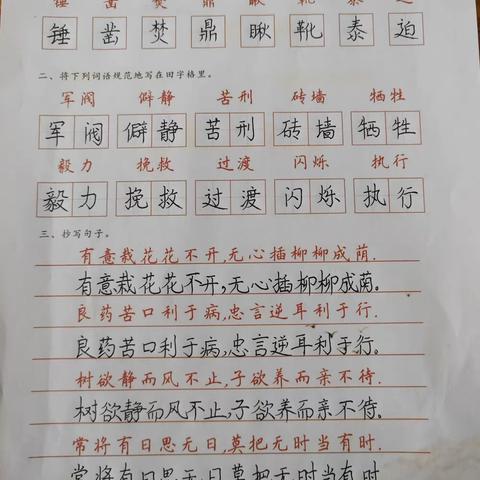 锤 凿 焚 鼎 瞅 靴 泰 迫
锤 凿 焚 鼎 瞅 靴 泰 迫
二、将下列词语规范地写在田字格里。
军阀 僻静 苦刑 砖墙 牺牲
军阀 僻静 苦刑 砖墙 牺牲
毅力 挽救 过渡 闪烁 执行
毅力 挽救 过渡 闪烁 执行
三、抄写句子。
有意栽花花不开,无心插柳柳成荫.
有意栽花花不开,无心插柳柳成荫。
良药苦口利于病,忠言逆耳利于行.
良药苦口利于病,忠言逆耳利于行。
树欲静而风不止,子欲养而亲不待.
树欲静而风不止,子欲养而亲不待。
常将有日思无日,莫把无时当有时.
常将有日思无日,莫把无时当有时